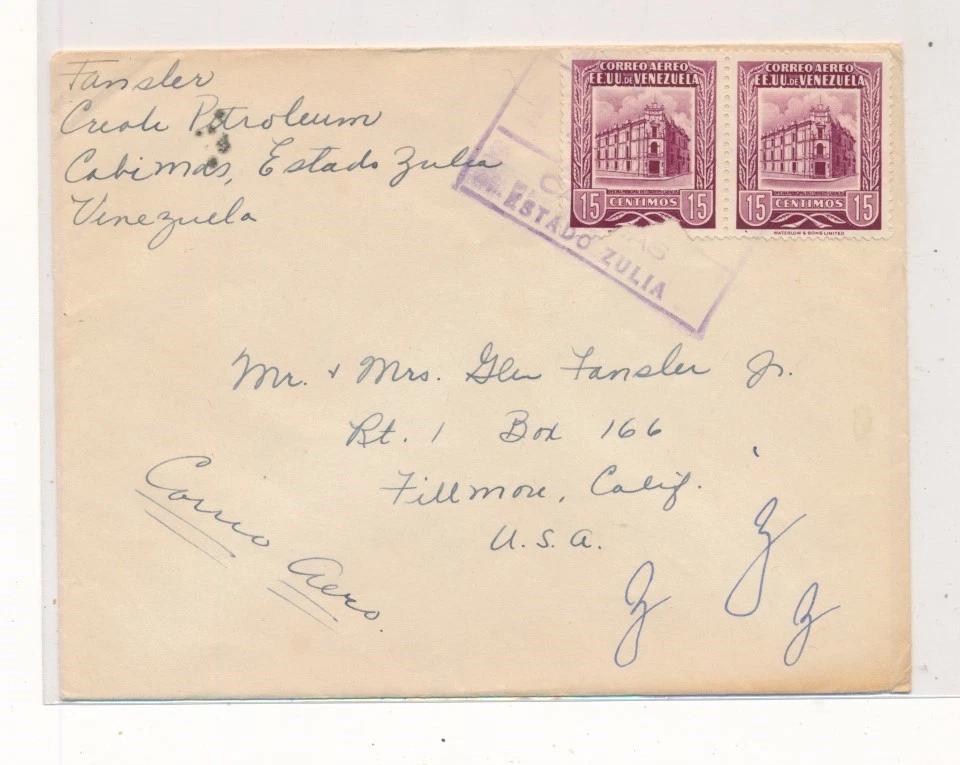 Fansler
Creole Petroleum
Cabimas, Estado Zulia
Venezuela
CORREO AEREO
EE.UU. DE VENEZUELA
OFICINA PRINCIPAL DE CORREOS CARACAS
15 CENTIMOS 15
CORREO AEREO
EE.UU. DE VENEZUELA
15 CENTIMOS 15
WATERLOW & SONS LIMITED
ESTADO ZULIA
Mr. + Mrs. Glen Fansler Jr.
Rt. 1 Box 166
Fillmore, Calif.
U.S.A.
Correo Aereo